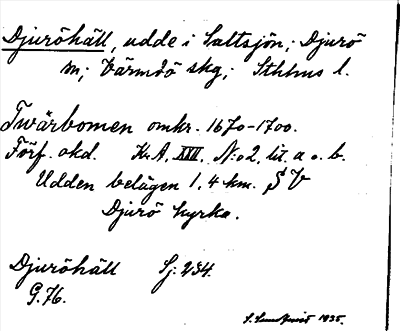 Djuröhäll, udde i Saltsjön; Djurö
sn; Värmdö skg; Sthlms l.
Twärbomen omkr. 1670-1700.
Förf. okd. K.A. XVII. N:o 2, lit. a o. b.
Udden belägen 1,4 km. SV
Djurö kyrka.
Djuröhäll Sj. 234.
G.76.
1935.